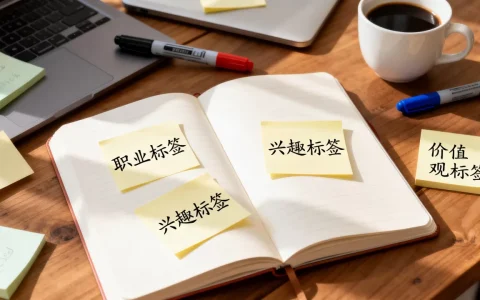 职业标签
兴趣标签
兴趣标签
价值
观标签